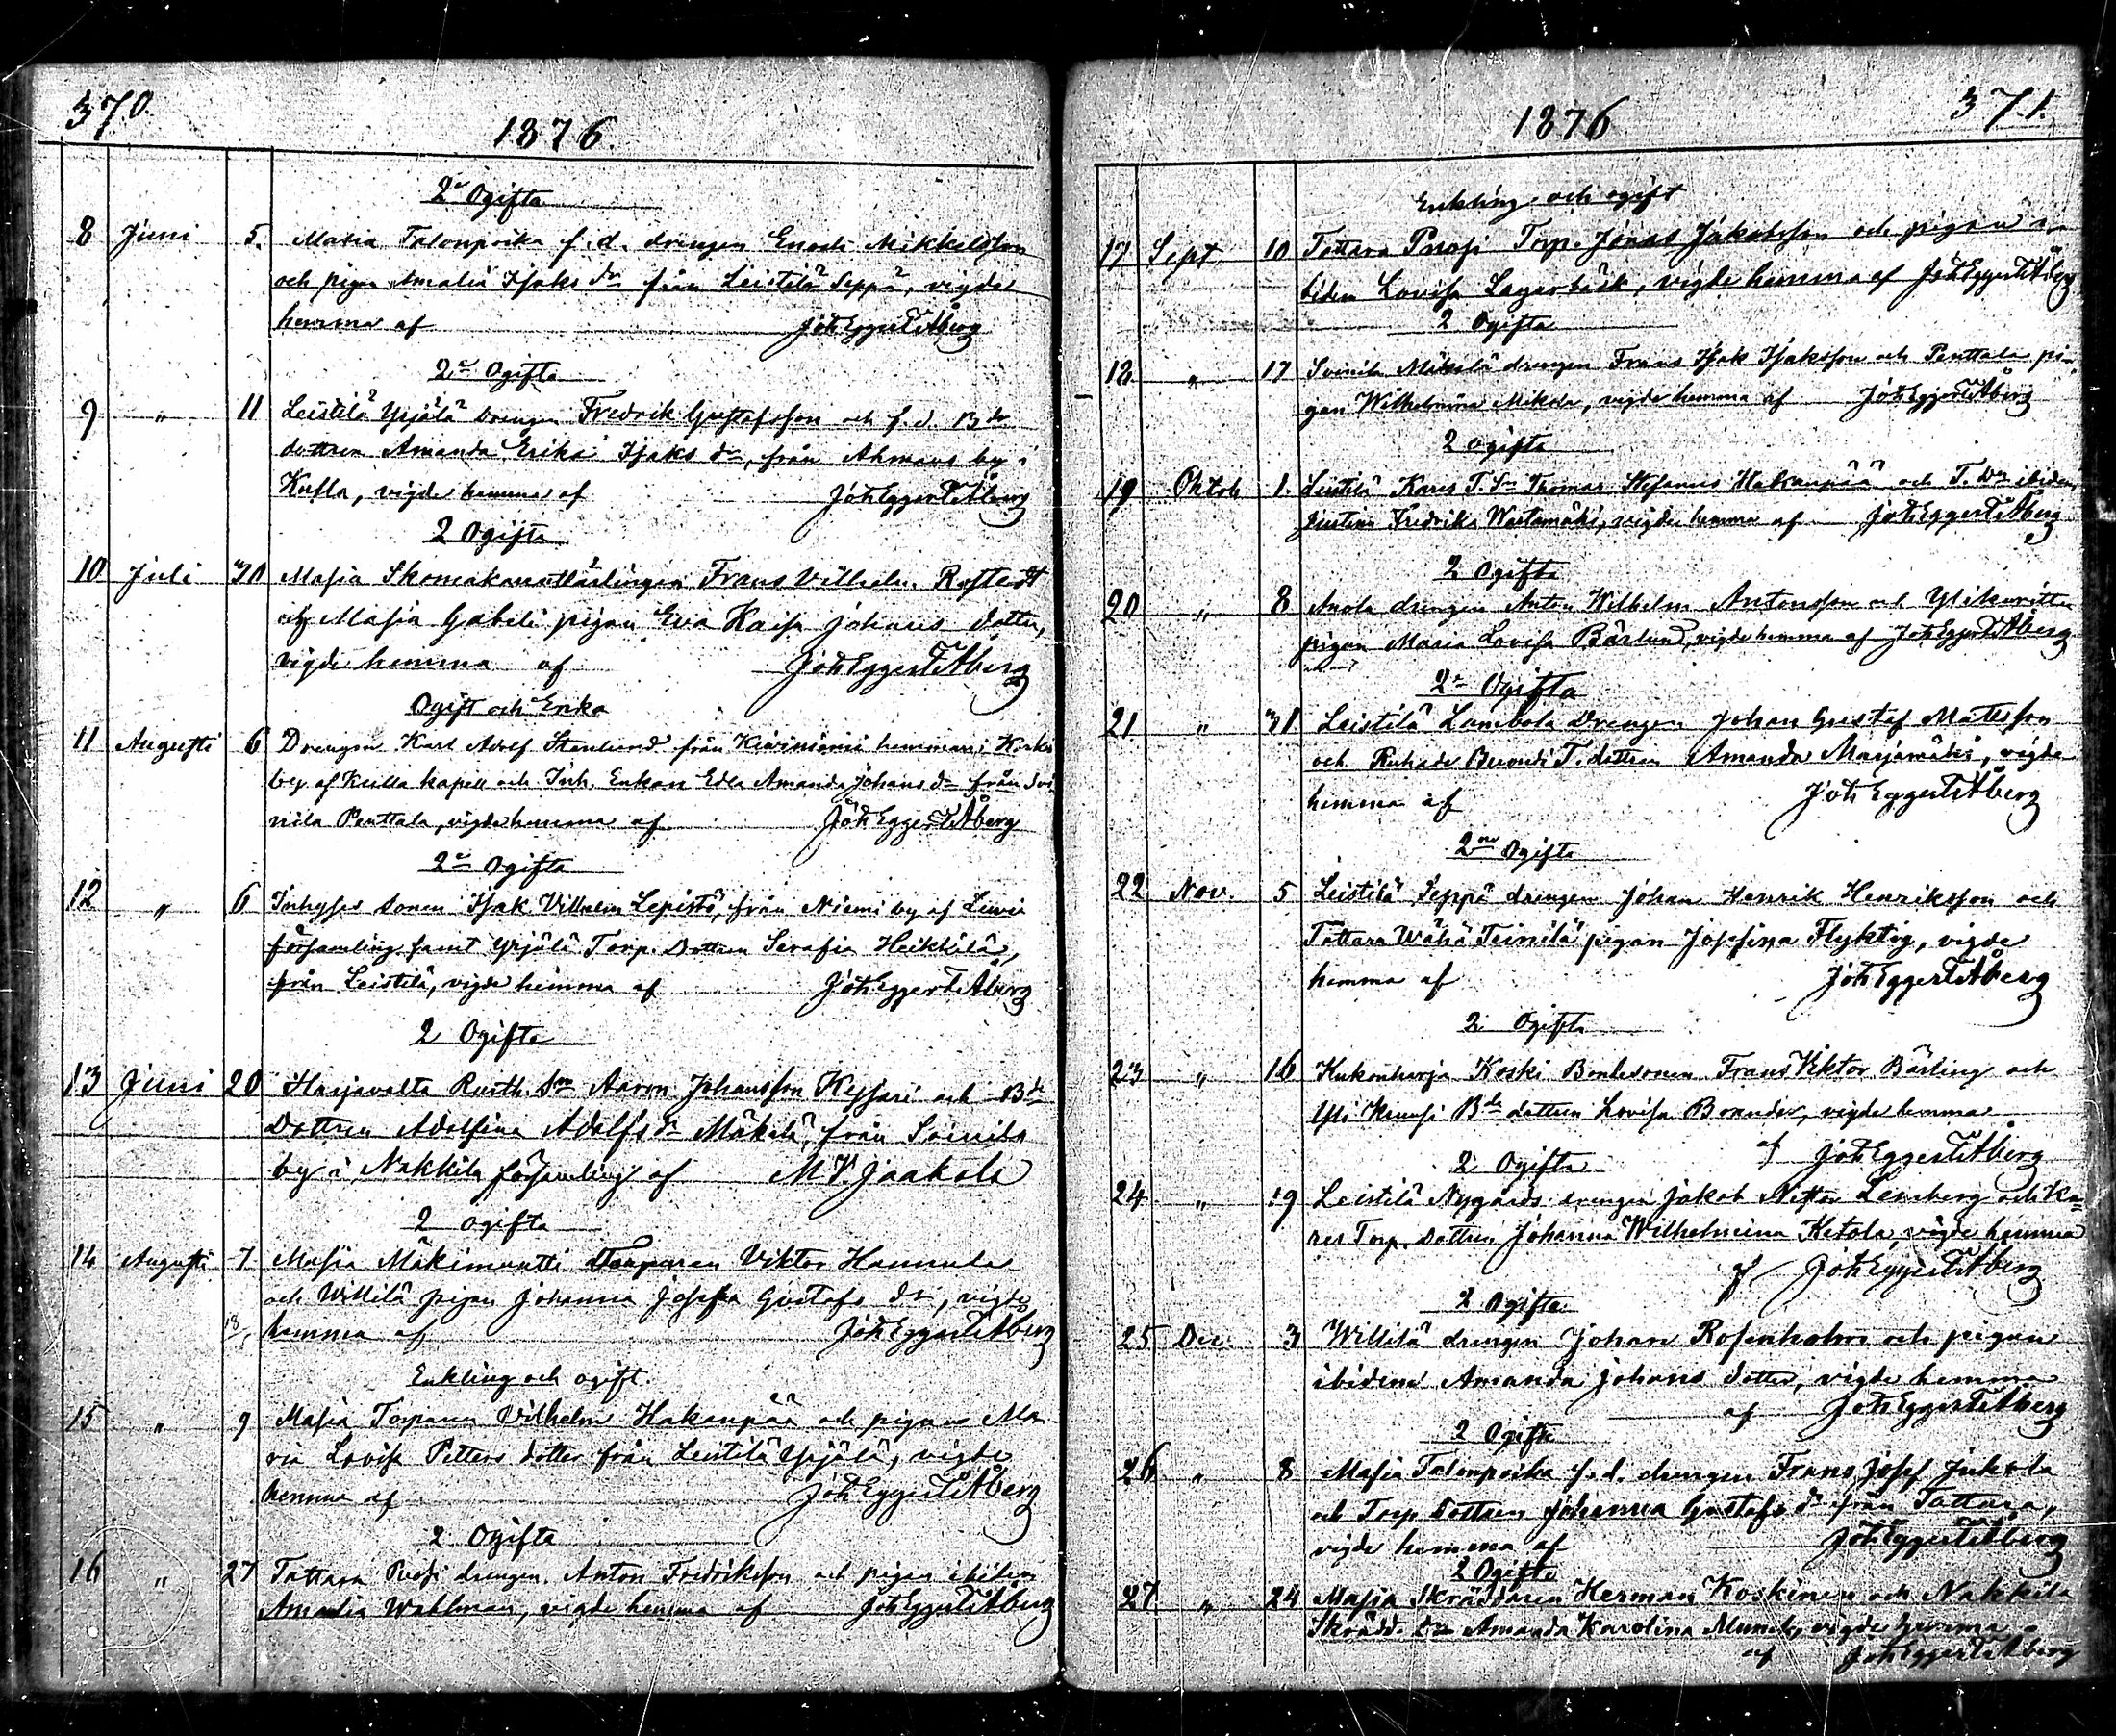 370.
1876.
2ne Ogifta
8 Juni 5. Masia Talonpoika f.d. drengen Enoch Mikkelsson
och pigan Amalia Isaks dr från Leistilä Seppä, vigde
hemma af Joh Eggert Åberg
2ne Ogifta
9 " 11 Leistilä Yrjälä drengen Fredrik Gustafsson och f.d. Bde
dottren Amanda Erika Isaks dr, från Ahmaus by i
Kiulla, vigde hemma af Joh Eggert Åberg
2 Ogifta
10 Juli 30 Masia Skomakarelärlingen Frans Vilhelm Rostedt
och Masia Gabeli pigan Eva Kaisa Johans dotter,
vigde hemma af Joh Eggert Åberg
Ogift och Enka
11 Augusti 6 Drengen Karl Adolf Stenlund från Kiviniemi hemman i Koski
by af Kiulla kapell och Inh. Enkan Edla Amanda Johans dr från Soi
nila Penttala, vigde hemma af Joh Eggert Åberg
2ne Ogifta
12 " 6 Inhyses sonen Isak Vilhelm Lepistö, från Niemi by af Luvia
församling samt Yrjälä Torp. Dottren Serafia Heikkilä,
från Leistilä, vigde hemma af Joh Eggert Åberg
2 Ogifta
13 Juni 20 Harjavalta Rusth. Sn Aaron Johansson Kessari och Bde
Dottren Adolfina Adolfs dr Mäkelä, från Soinila
by i Nakkila församling af M V. Jaakola
2 ogifta
14 Augusti 7 Masia Mäkimantti Torparen Viktor Hannula
och Willilä pigan Johanna Josefa Gustafs dr, vigde
18/ hemma af Joh Eggert Åberg
Enkling och ogift.
15 " 9 Masia Torparen Vilhelm Hakanpää och pigan Ma
ria Lovisa Petters dotter från Leistilä Yrjälä, vigde
hemma af Joh Eggert Åberg
2 Ogifta
16 " 27 Tattara Prosi drengen Anton Fredriksson och pigan ibidem
Amanda Wahlman, vigde hemma af Joh Eggert Åberg
1876
371.
Enkling och ogift
17 Sept 10 Tattara Prosi Torp. Jonas Jakobsson och pigan i
bidem Lovisa Lagerbäck, vigde hemma af Joh Eggert Åberg
2 Ogifta
18 " 17 Soinila Mäkelä drengen Frans Isak Isaksson och Penttala pi
gan Wilhelmina Mikola, vigde hemma af Joh Eggert Åberg
2 ogifta
19 Oktob 1. Leistilä Kares T. Sn Thomas Stefanus Hakanpää och T. Dr ibidem
Justina Fredrika Wastamäki, vigde hemma af Joh Eggert Åberg
2 Ogifta
20 " 8 Anola drengen Anton Wilhelm Antonsson och
pigan Maria Lovisa Bärlund, vigde hemma af Joh Eggert Åberg
2ne Ogifta
21 " 31 Leistilä Lambola Drengen Johan Gustaf Matesson
och Ruhade T. dottren Amanda Marjamäki, vigde
hemma af Joh Eggert Åberg
2ne Ogifta
22 Nov. 5 Leistilä Seppä drengen Johan Henrik Henriksson och
Tattara Wähä Teinilä pigan Josefina Flykting, vigde
hemma af Joh Eggert Åberg
2 Ogifta
23 " 16 Kukonharja Koski Bondesonen Frans Viktor Bärling och
Bde dottren Lovisa, vigde hemma
af Joh Eggert Åberg
2 Ogifta
24 " 19 Leistilä Nygårds drengen Jakob Petter Lensberg och Ka
res Torp. dottren Johanna Wilhelmina Ketola, vigde hemma
af Joh Eggert Åberg
2 Ogifta
25 Dec. 3 Willilä drengen Johan Rosenholm och pigan
ibidem Amanda Johans dotter, vigde hemma
af Joh Eggert Åberg
2 Ogifta
26 " 8 Masia Talonpoika f.d. drengen Frans Josef Jukola
och Torp dottren Johanna Gustafs dr från Tattara,
vigde hemma af Joh Eggert Åberg
2 Ogifta
27 " 24 Masia Skräddaren Herman Koskinen och Nakkila
Skrädd. Dr Amanda Karolina Munck, vigde hemma
af Joh Eggert Åberg